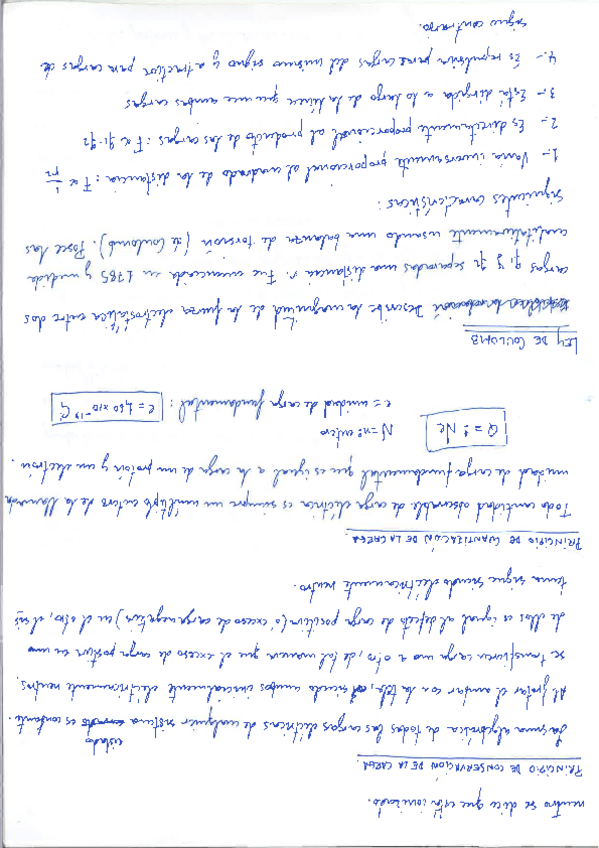 neutro se dice que está ionizado.
PRINCIPIO DE CONSERVACIÓN DE LA CARGA.
La suma algebraica de todas las cargas eléctricas de cualquier sistema aislado es constante.
Al frotar el ámbar con la tela, siendo ambos inicialmente eléctricamente neutros,
se transfieren carga uno a otro, de tal manera que el exceso de carga positiva en uno
de ellos es igual al defecto de carga positiva (o exceso de carga negativa) en el otro, el sis
tema sigue siendo eléctricamente neutro.
PRINCIPIO DE CUANTIZACIÓN DE LA CARGA.
Toda cantidad observable de carga eléctrica es siempre un múltiplo entero de la llamada
unidad de carga fundamental que es igual a la carga de un protón y un electrón.
Q = ± Ne N = nº entero
e = unidad de carga fundamental : e = 1,60 × 10⁻¹⁹ C
LEY DE COULOMB
Describe la magnitud de la fuerza electrostática entre dos
cargas q₁ y q₂ separadas una distancia r. Fue enunciada en 1785 y medida
cualitativamente usando una balanza de torsión (de Coulomb). Posee las
siguientes características :
1.- Varía inversamente proporcional al cuadrado de la distancia : F ∝ 1/r²
2.- Es directamente proporcional al producto de las cargas : F ∝ q₁·q₂
3.- Está dirigida a lo largo de la línea que une ambas cargas
4.- Es repulsiva para cargas del mismo signo y atractiva para cargas de
signo contrario.